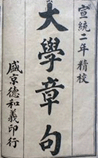 宣統二年精校
大學章句
盛京德和義印行